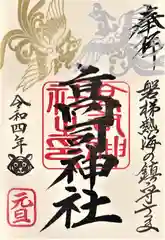 奉拝
磐梯熱海の鎮守さま
髙司神社
令和四年
元旦